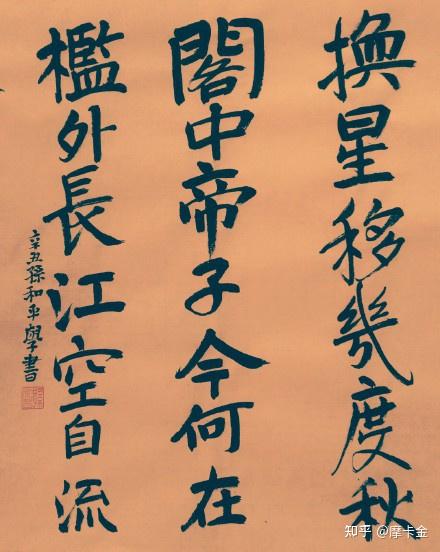 換星移幾度秋
閣中帝子今何在
檻外長江空自流
辛丑孫和平學書
知乎 @摩卡金